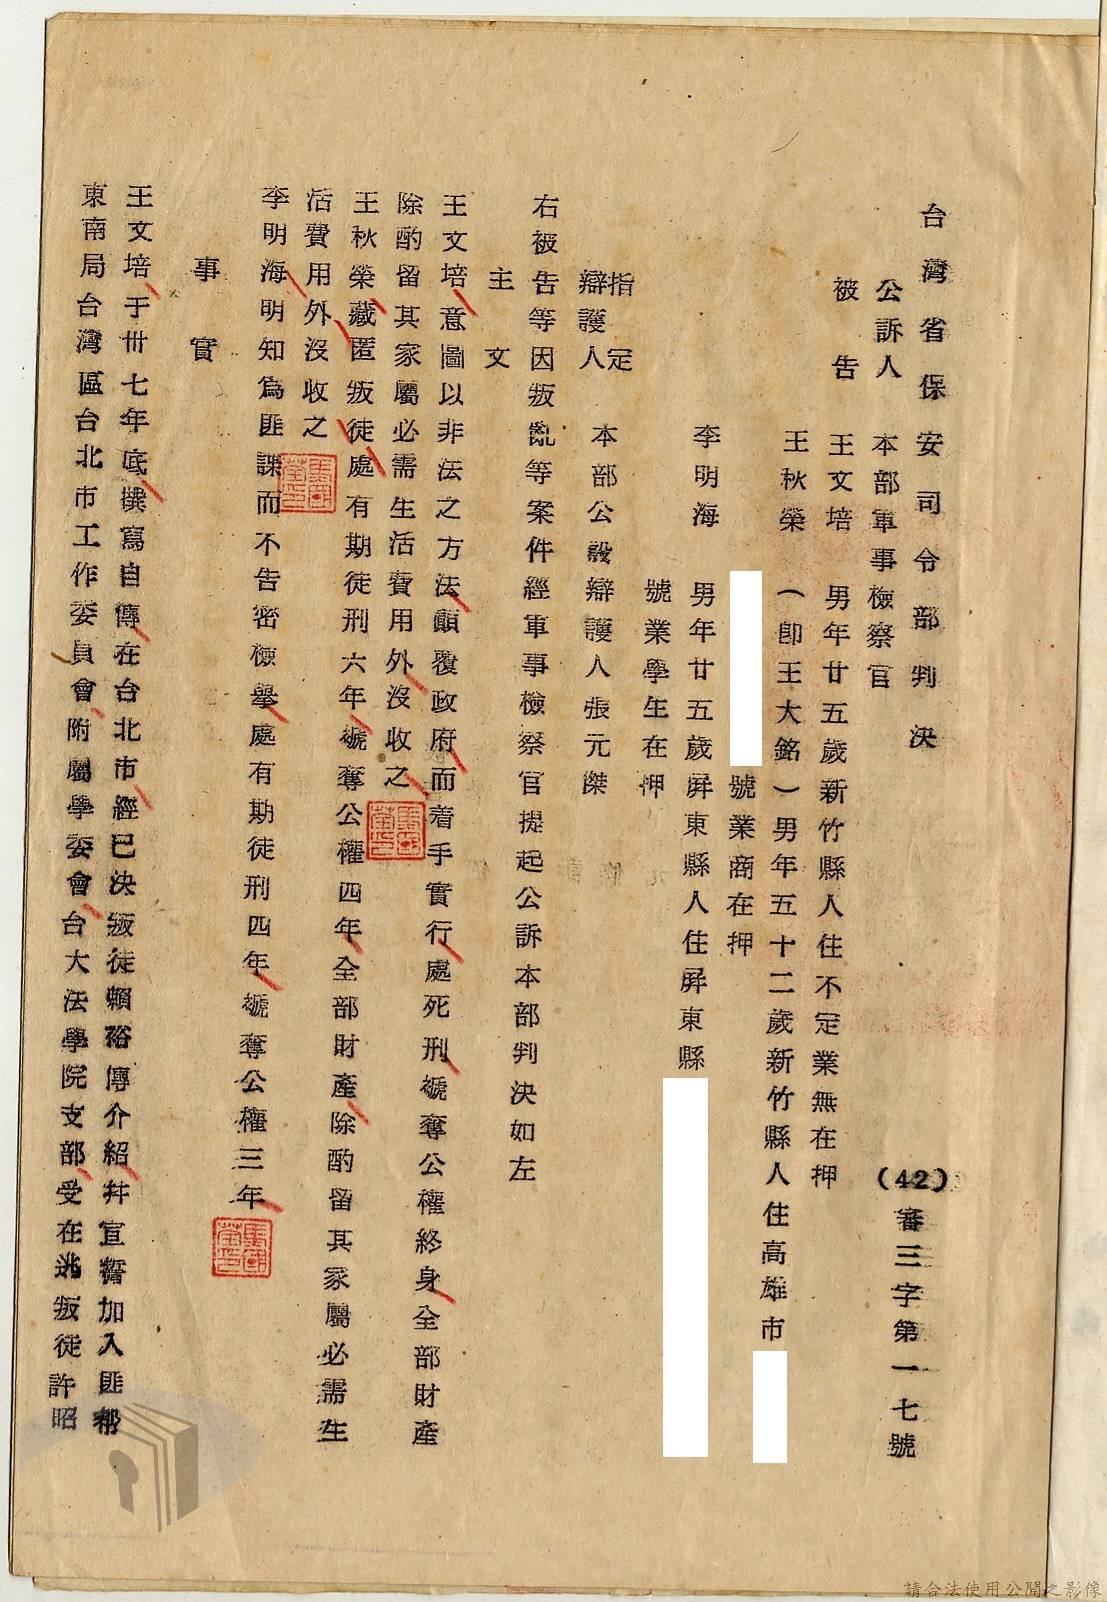 台灣省保安司令部判決
(42)審三字第一七號
公訴人　本部軍事檢察官
被告　王文培　男年廿五歲新竹縣人住不定業無在押
王秋榮　(卽王大銘)男年五十二歲新竹縣人住高雄市
號業商在押
李明海　男年廿五歲屏東縣人住屏東縣
號業學生在押
指定
辯護人　本部公設辯護人張元傑
右被告等因叛亂等案件經軍事檢察官提起公訴本部判決如左
主文
王文培意圖以非法之方法顛覆政府而着手實行處死刑褫奪公權終身全部財產
除酌留其家屬必需生活費用外沒收之
王秋榮藏匿叛徒處有期徒刑六年褫奪公權四年全部財產除酌留其家屬必需生
活費用外沒收之
李明海明知爲匪諜而不告密檢舉處有期徒刑四年褫奪公權三年
事實
王文培于卅七年底撰寫自傳在台北市經已決叛徒賴裕傳介紹幷宣誓加入匪幫
東南局台灣區台北市工作委員會附屬學委會台大法學院支部受在逃叛徒許昭
請合法使用公開之影像